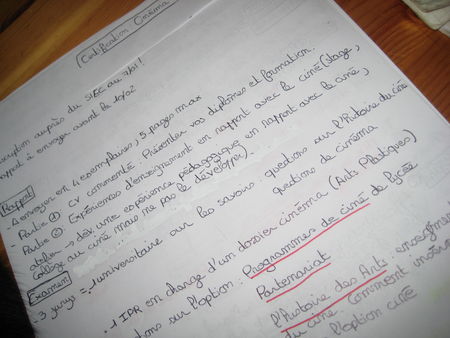 Certification Cinéma
auprès du SIEC au 7/01!
à envoyer avant le 10/02
Rapport
- A envoyer en 4 exemplaires, 5 pages max
- Partie ① CV commenté. Présenter vos diplômes et formation.
- Partie ②: Expériences d'enseignement en rapport avec le ciné (stage,
atelier → dév. une expérience pédagogique en rapport avec le ciné,
au ciné mais ne pas le développer)
Examen
- 3 jurys = . 1 universitaire sur les savoirs: questions sur l'Histoire du ciné
questions de cinéma
. 1 IPR en charge d'un dossier cinéma (Arts Plastiques)
sur l'option: Programmes de ciné de lycée
Partenariat
l'Histoire des Arts:
du ciné. Comment
l'option ciné